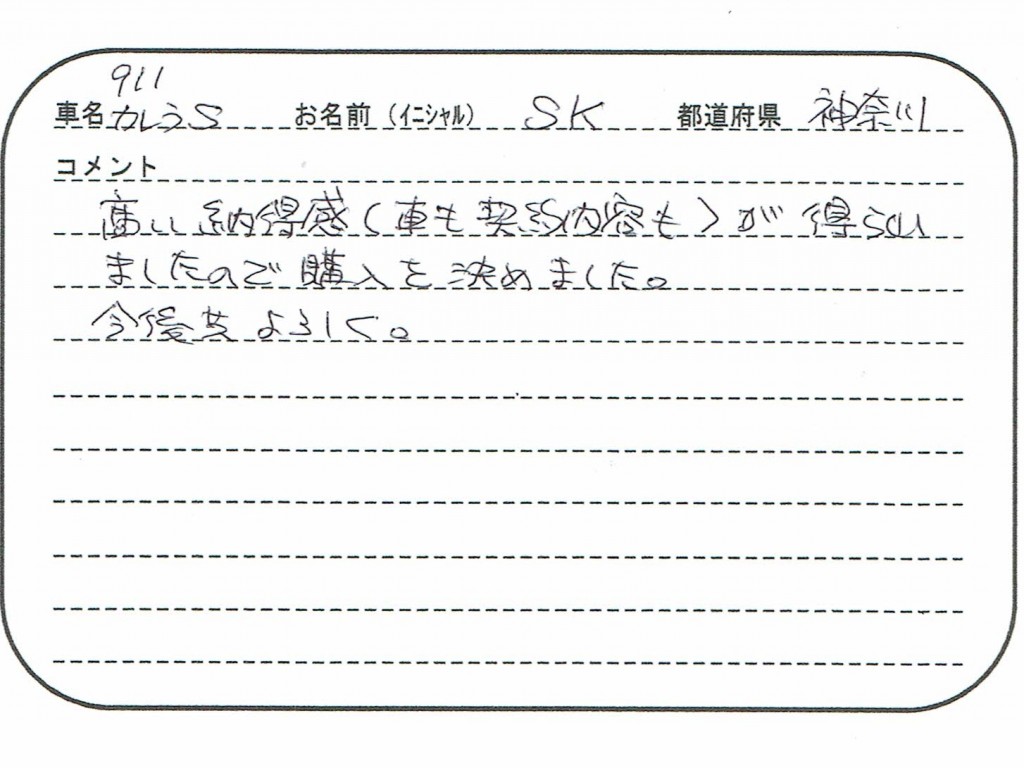 911
車名 カレラS お名前（イニシャル） SK 都道府県 神奈川
コメント
高い納得感(車も契約内容も)が得られ
ましたので購入を決めました。
今後共よろしく。